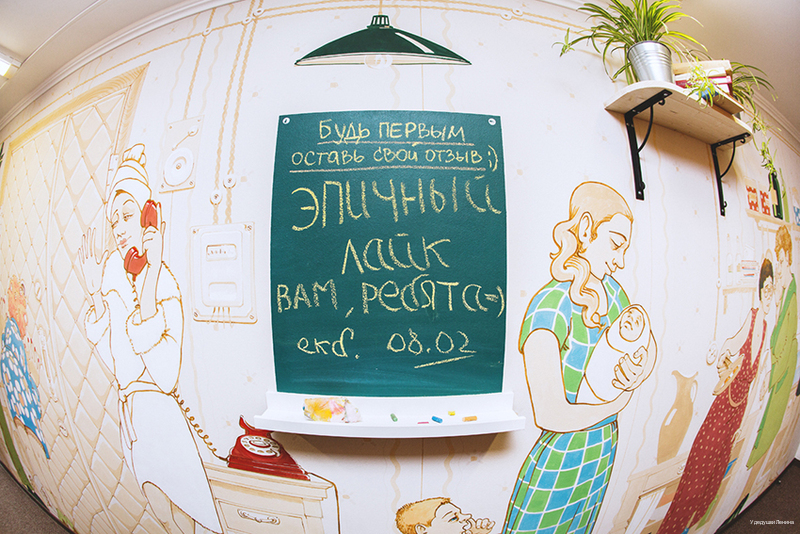 Будь первым
оставь свой отзыв ;)
эпичный
лайк
вам, ребята =)
екб. 08.02
У дедушки Ленина